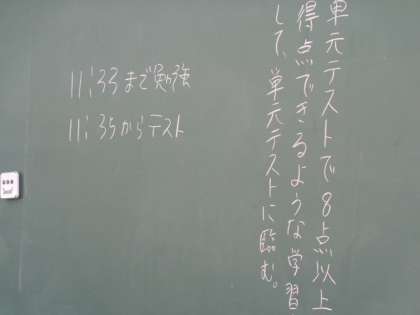 単元テストで8点以上
得点できるような学習
して、単元テストに臨む。
11:33まで勉強
11:35からテスト